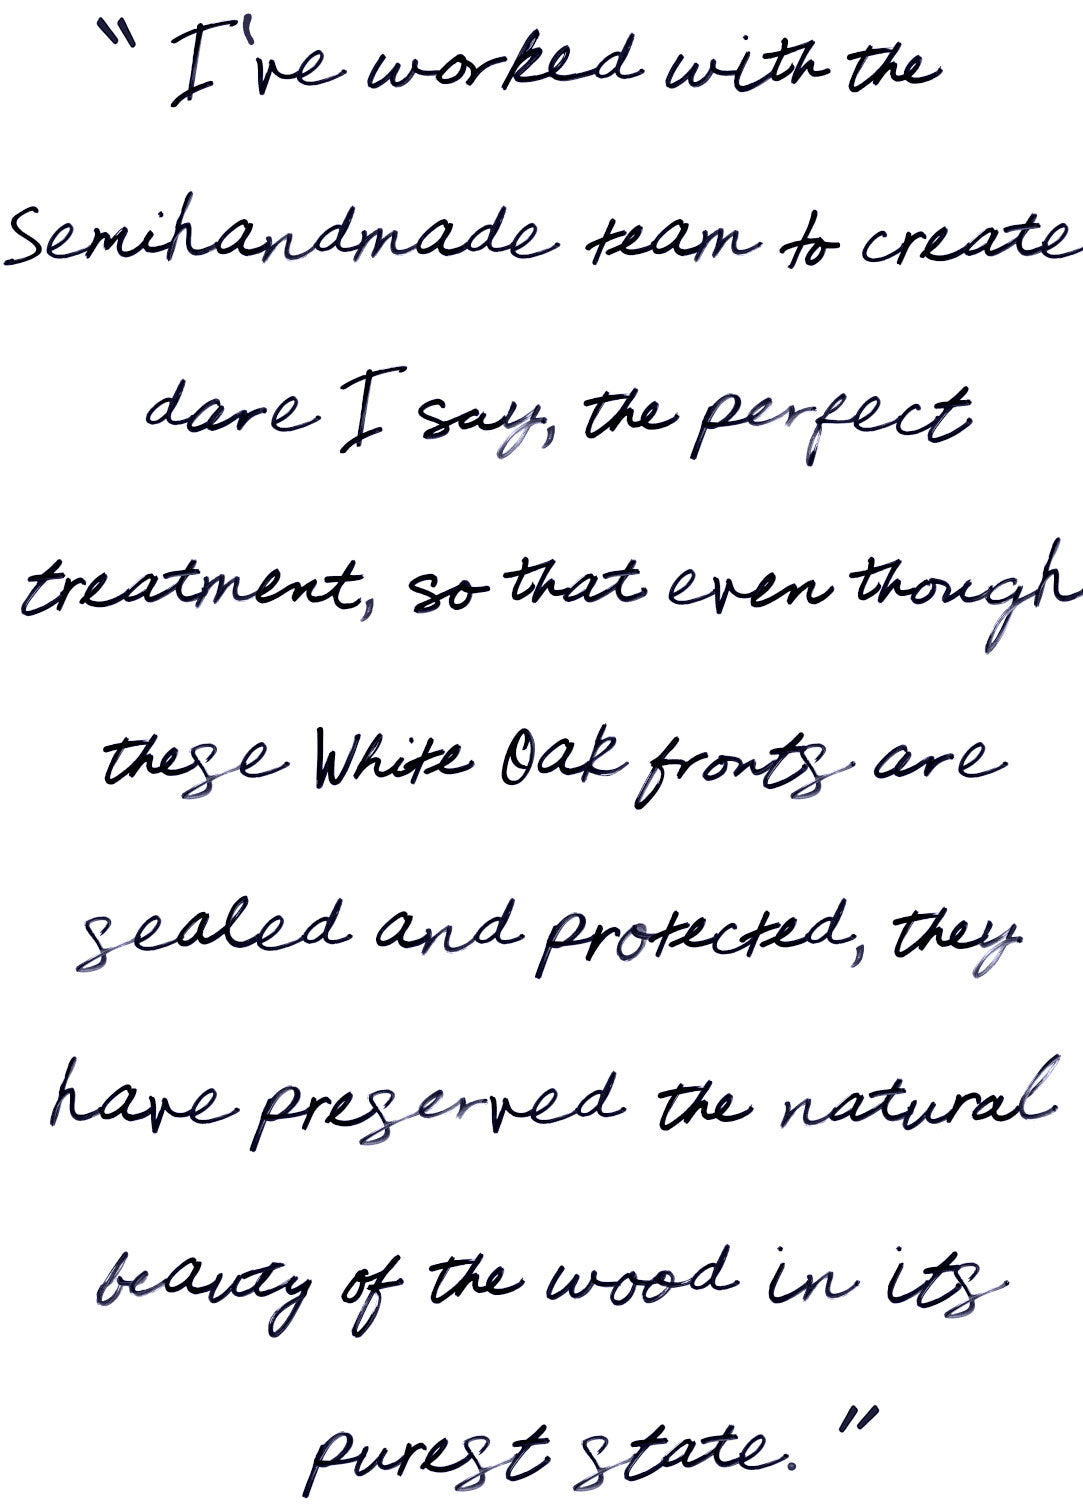 "I've worked with the
Semihandmade team to create
dare I say, the perfect
treatment, so that even though
these White Oak fronts are
sealed and protected, they
have preserved the natural
beauty of the wood in its
purest state."